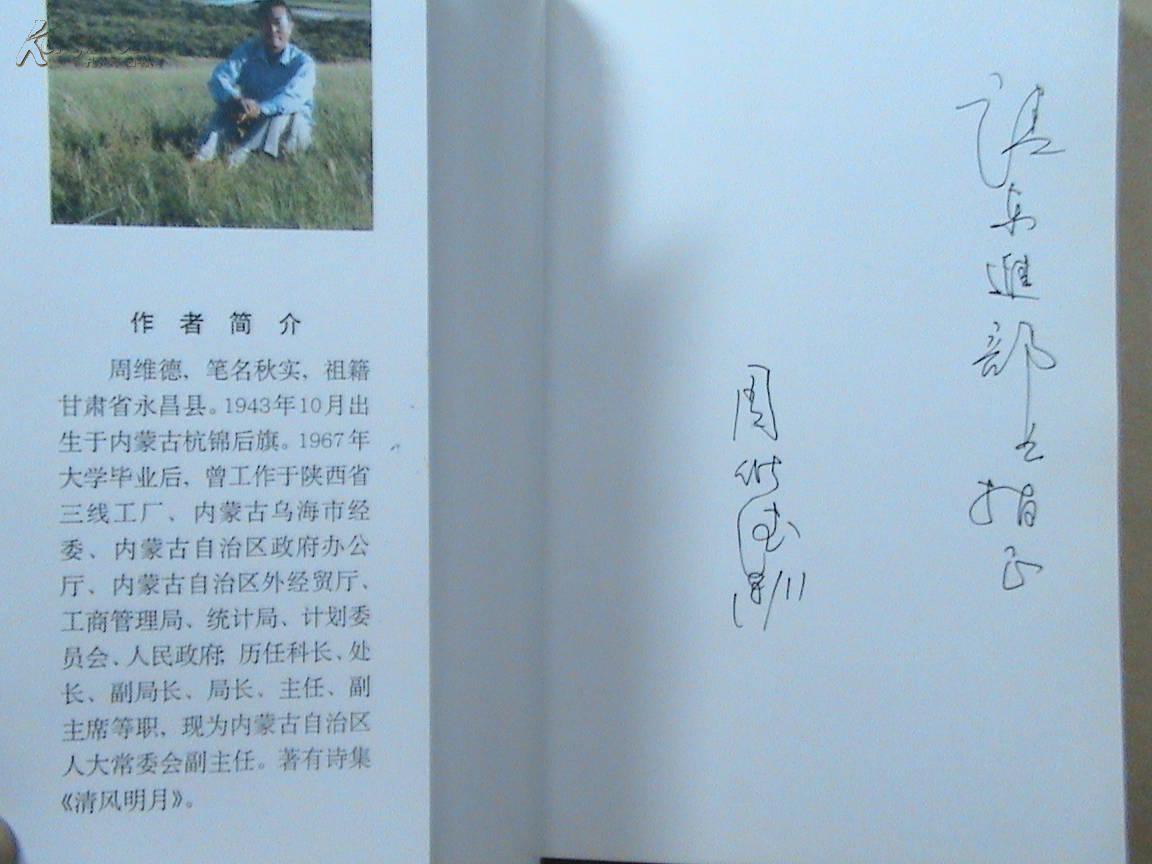 作者简介
周维德，笔名秋实，祖籍
甘肃省永昌县。1943年10月出
生于内蒙古杭锦后旗。1967年
大学毕业后，曾工作于陕西省
三线工厂、内蒙古乌海市经
委、内蒙古自治区政府办公
厅、内蒙古自治区外经贸厅、
工商管理局、统计局、计划委
员会、人民政府；历任科长、处
长、副局长、局长、主任、副
主席等职，现为内蒙古自治区
人大常委会副主任。著有诗集
《清风明月》。
请东进部长指正
周维德